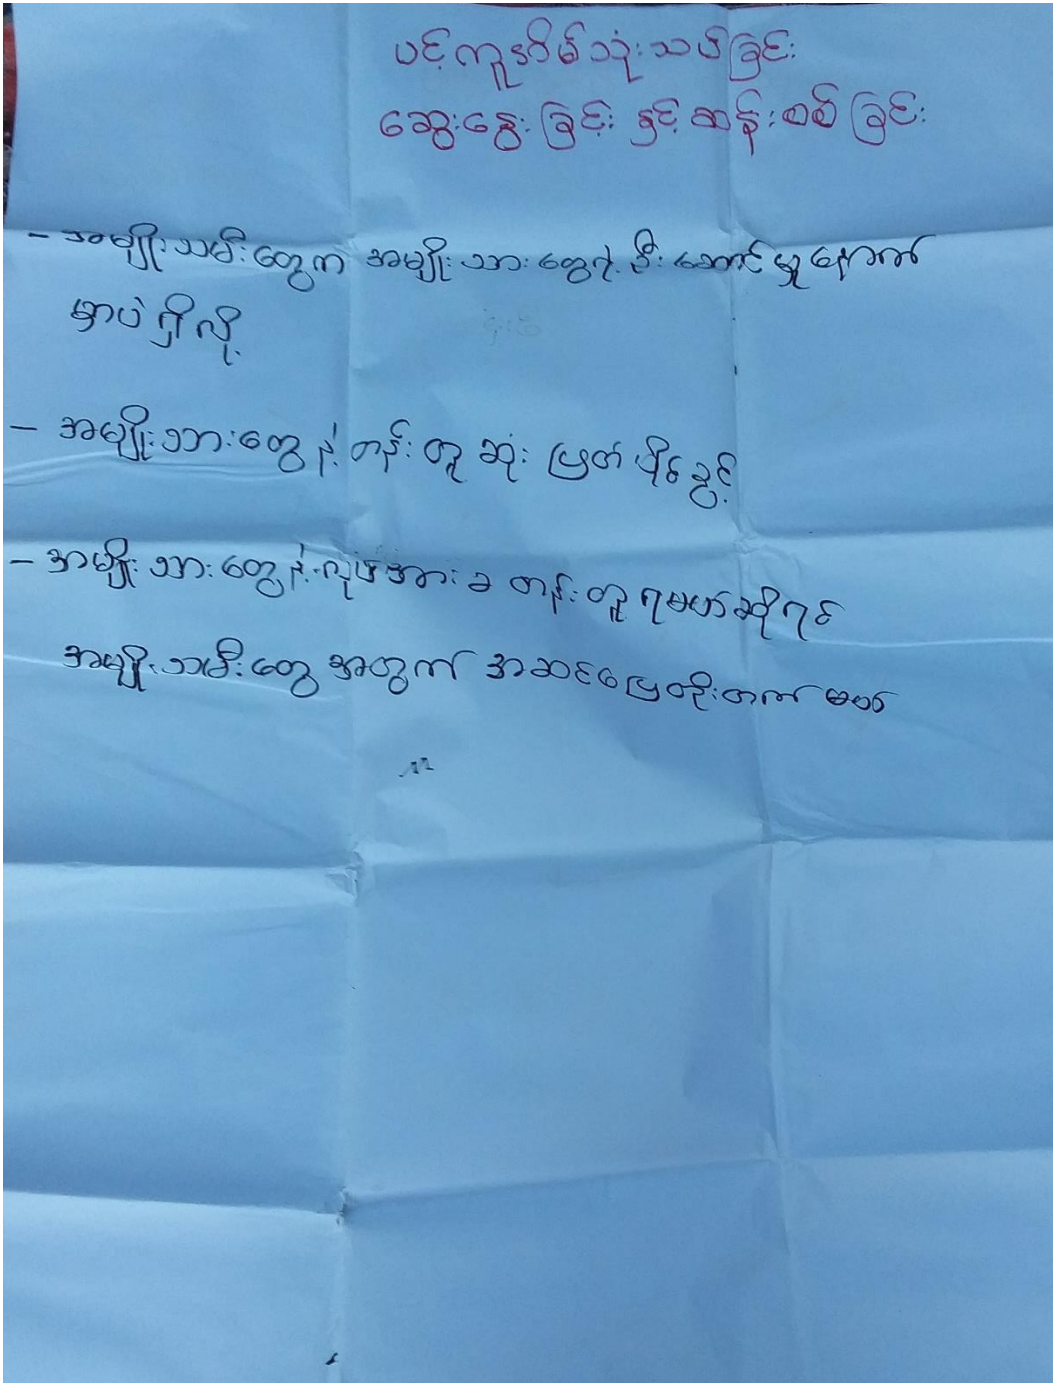 ပင့်ကူအိမ်သုံးသပ်ခြင်း
ဆွေးနွေးခြင်း နှင့် ဆန်းစစ်ခြင်း
- အမျိုးသမီးတွေက အမျိုးသားတွေရဲ့ ဦးဆောင်မှုနောက်
မှာပဲ ရှိလို့
- အမျိုးသားတွေနဲ့ တန်းတူ ဆုံးဖြတ်ပိုင်ခွင့်
- အမျိုးသားတွေနဲ့ လုပ်အားခ တန်းတူရမယ်ဆိုရင်
အမျိုးသမီးတွေ အတွက် အဆင့်မြှေတိုးတက်မယ်